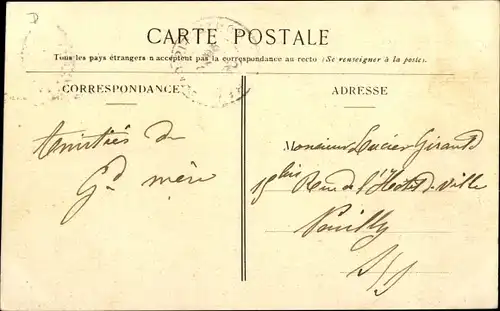 D
CARTE POSTALE
Tous les pays étrangers n'acceptent pas la correspondance au recto (Se renseigner à la poste).
CORRESPONDANCE
ADRESSE
Amitiés de
Gd mère
Monsieur Lucien Giraud
Rue de l'Hotel de Ville